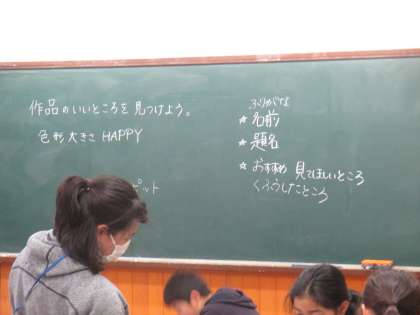 作品のいいところを見つけよう。
色形大きさ HAPPY
ット
ふりがな
★名前
★題名
★おすすめ 見てほしいところ
くふうしたところ